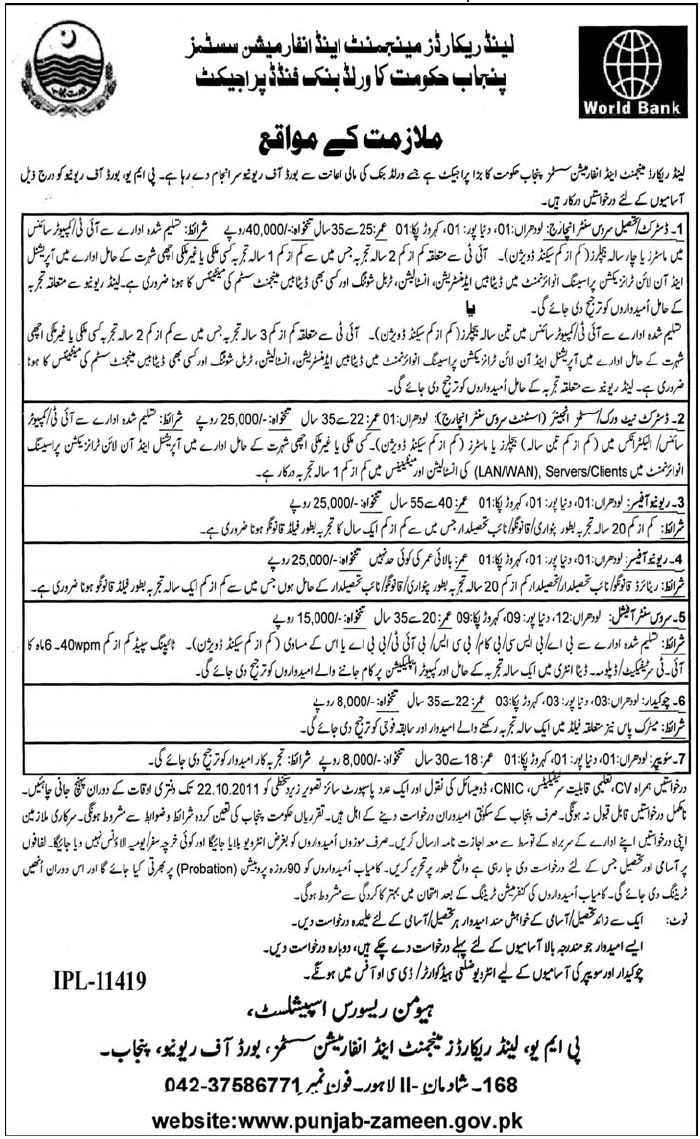 لینڈ ریکارڈز مینجمنٹ اینڈ انفارمیشن سسٹمز
پنجاب حکومت کا ورلڈ بنک فنڈڈ پراجیکٹ
World Bank
ملازمت کے مواقع
لینڈ ریکارڈ مینجمنٹ اینڈ انفارمیشن سسٹمز پنجاب حکومت کا بڑا پراجیکٹ ہے جسے ورلڈ بنک کی مالی اعانت سے بورڈ آف ریونیو سرانجام دے رہا ہے۔ پی ایم یو، بورڈ آف ریونیو کو درج ذیل
آسامیوں کے لئے درخواستیں درکار ہیں۔
1۔ ڈسٹرکٹ/تحصیل سروس سنٹر انچارج: لودھراں: 01، دنیا پور: 01، کہروڑ پکا: 01 عمر: 25 سے 35 سال تنخواہ: -/40,000 روپے شرائط: تسلیم شدہ ادارے سے آئی ٹی/کمپیوٹر سائنس
میں ماسٹرز یا چار سالہ بیچلرز (کم از کم سیکنڈ ڈویژن)۔ آئی ٹی سے متعلقہ کم از کم 2 سالہ تجربہ جس میں سے کم از کم 1 سالہ تجربہ کسی ملکی یا غیر ملکی اچھی شہرت کے حامل ادارے میں آپریشنل
اینڈ آن لائن ٹرانزیکشن پراسیسنگ انوائرنمنٹ میں ڈیٹابیس ایڈمنسٹریشن، انسٹالیشن، ٹربل شوٹنگ اور کسی بھی ڈیٹابیس مینجمنٹ سسٹم کی مینٹیننس کا ہونا ضروری ہے۔ لینڈ ریونیو سے متعلقہ تجربہ
کے حامل اُمیدواروں کو ترجیح دی جائے گی۔ یا
تسلیم شدہ ادارے سے آئی ٹی/کمپیوٹر سائنس میں تین سالہ بیچلرز (کم از کم سیکنڈ ڈویژن)۔ آئی ٹی سے متعلقہ کم از کم 3 سالہ تجربہ جس میں سے کم از کم 2 سالہ تجربہ کسی ملکی یا غیر ملکی اچھی
شہرت کے حامل ادارے میں آپریشنل اینڈ آن لائن ٹرانزیکشن پراسیسنگ انوائرنمنٹ میں ڈیٹابیس ایڈمنسٹریشن، انسٹالیشن، ٹربل شوٹنگ اور کسی بھی ڈیٹابیس مینجمنٹ سسٹم کی مینٹیننس کا ہونا
ضروری ہے۔ لینڈ ریونیو سے متعلقہ تجربہ کے حامل اُمیدواروں کو ترجیح دی جائے گی۔
2۔ ڈسٹرکٹ نیٹ ورک/سسٹمز انجینئر (اسسٹنٹ سروس سنٹر انچارج): لودھراں: 01 عمر: 22 سے 35 سال تنخواہ: -/25,000 روپے شرائط: تسلیم شدہ ادارے سے آئی ٹی/کمپیوٹر
سائنس/الیکٹرانکس میں (کم از کم تین سالہ) بیچلرز یا ماسٹرز (کم از کم سیکنڈ ڈویژن)۔ کسی ملکی یا غیر ملکی اچھی شہرت کے حامل ادارے میں آپریشنل اینڈ آن لائن ٹرانزیکشن پراسیسنگ
انوائرنمنٹ میں Servers/Clients ،(LAN/WAN) کی انسٹالیشن اور مینٹیننس میں کم از کم 1 سالہ تجربہ درکار ہے۔
3۔ ریونیو آفیسر: لودھراں: 01، دنیا پور: 01، کہروڑ پکا: 01 عمر: 40 سے 55 سال تنخواہ: -/25,000 روپے
شرائط: کم از کم 20 سالہ تجربہ بطور پٹواری/قانونگو/نائب تحصیلدار جس میں سے کم از کم ایک سال کا تجربہ بطور فیلڈ قانونگو ہونا ضروری ہے۔
4۔ ریونیو آفیسر: لودھراں: 01، دنیا پور: 01، کہروڑ پکا: 01 عمر: بالائی عمر کی کوئی حد نہیں تنخواہ: -/25,000 روپے
شرائط: ریٹائرڈ قانونگو/نائب تحصیلدار/تحصیلدار کم از کم 20 سالہ تجربہ بطور پٹواری/قانونگو/نائب تحصیلدار کے حامل ہوں جس میں سے کم از کم ایک سالہ تجربہ بطور فیلڈ قانونگو ہونا ضروری ہے۔
5۔ سروس سنٹر آفیشل: لودھراں: 12، دنیا پور: 09، کہروڑ پکا: 09 عمر: 20 سے 35 سال تنخواہ: -/15,000 روپے
شرائط: تسلیم شدہ ادارے سے بی اے/بی ایس سی/بی کام/بی سی ایس/بی آئی ٹی/بی بی اے یا اس کے مساوی (کم از کم سیکنڈ ڈویژن)۔ ٹائپنگ سپیڈ کم از کم 40wpm۔ 6 ماہ کا
آئی۔ٹی سرٹیفکیٹ/ڈپلومہ۔ ڈیٹا انٹری میں ایک سالہ تجربہ کے حامل اور کمپیوٹر ایپلیکیشن پر کام جاننے والے امیدواروں کو ترجیح دی جائے گی۔
6۔ چوکیدار: لودھراں: 03، دنیا پور: 03، کہروڑ پکا: 03 عمر: 22 سے 35 سال تنخواہ: -/8,000 روپے
شرائط: میٹرک پاس نیز متعلقہ فیلڈ میں ایک سالہ تجربہ رکھنے والے امیدوار اور سابقہ فوجی کو ترجیح دی جائے گی۔
7۔ سویپر: لودھراں: 01، دنیا پور: 01، کہروڑ پکا: 01 عمر: 18 سے 30 سال تنخواہ: -/8,000 روپے شرائط: تجربہ کار امیدوار کو ترجیح دی جائے گی۔
درخواستیں ہمراہ CV، تعلیمی قابلیت سرٹیفکیٹس، CNIC، ڈومیسائل کی نقول اور ایک عدد پاسپورٹ سائز تصویر زیر دستخطی کو 22.10.2011 تک دفتری اوقات کے دوران پہنچ جانی چاہئیں۔
نامکمل درخواستیں قابل قبول نہ ہونگی۔ صرف پنجاب کے سکونتی امیدوران درخواست دینے کے اہل ہیں۔ تقرریاں حکومت پنجاب کی تعین کردہ شرائط و ضوابط سے مشروط ہونگی۔ سرکاری ملازمین
اپنی درخواستیں اپنے ادارے کے سربراہ کے توسط سے معہ اجازت نامہ ارسال کریں۔ صرف موزوں امیدواروں کو بغرض انٹرویو بلایا جائیگا اور کوئی خرچہ سفر/یومیہ الاؤنس نہیں دیا جائیگا۔ لفافوں
پر آسامی اور تحصیل جس کے لئے درخواست دی جا رہی ہے واضح طور پر تحریر کریں۔ کامیاب اُمیدواروں کو 90 روزہ پروبیشن (Probation) پر بھرتی کیا جائے گا اور اس دوران اُنھیں
ٹریننگ دی جائے گی۔ کامیاب اُمیدواروں کی کنفرمیشن ٹریننگ کے بعد امتحان میں بہتر کارکردگی سے مشروط ہوگی۔
نوٹ: ایک سے زائد تحصیل/آسامی کے خواہش مند امیدوار ہر تحصیل/آسامی کے لئے علیحدہ درخواست دیں۔
ایسے امیدوار جو مندرجہ بالا آسامیوں کے لئے پہلے درخواست دے چکے ہیں، دوبارہ درخواست دیں۔
چوکیدار اور سویپر کی آسامیوں کے لیے انٹرویو ضلعی ہیڈ کوارٹر/ڈی سی او آفس میں ہونگے۔
IPL-11419
ہیومن ریسورس اسپیشلسٹ،
پی ایم یو، لینڈ ریکارڈز مینجمنٹ اینڈ انفارمیشن سسٹمز، بورڈ آف ریونیو، پنجاب۔
168۔ شادمان-II لاہور۔ فون نمبر 042-37586771
website:www.punjab-zameen.gov.pk